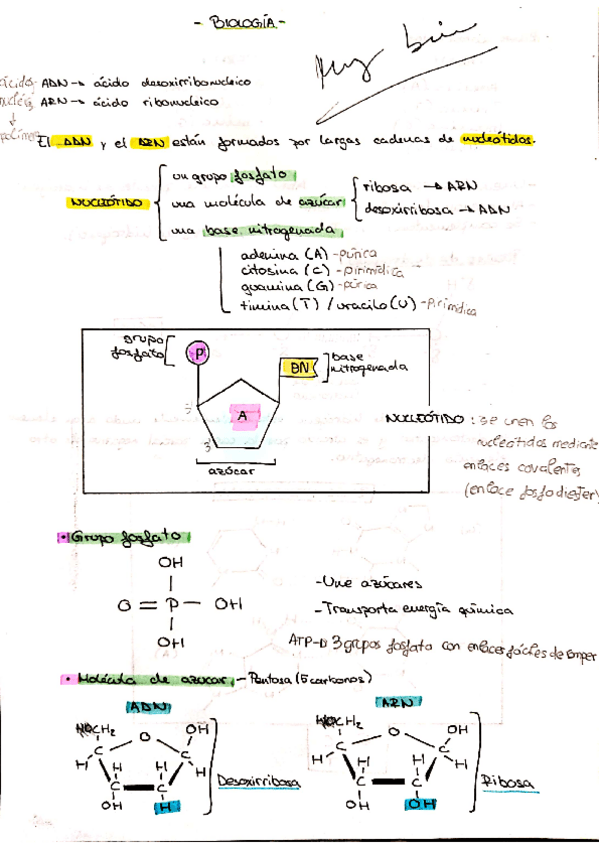 - BIOLOGÍA -
Muy bien
ácidos ADN → ácido desoxirribonucleico
nucleic ARN → ácido ribonucleico
↓
polímero
El ADN y el ARN están formados por largas cadenas de nucleótidos.
NUCLEÓTIDO
un grupo fosfato
una molécula de azúcar
ribosa → ARN
desoxirribosa → ADN
una base nitrogenada
adenina (A) - púrica
citosina (C) - pirimídica
guanina (G) - púrica
timina (T) / uracilo (U) - Pirimídica
grupo fosfato
P
BN
base nitrogenada
A
5'
3'
azúcar
NUCLEÓTIDO : se unen los
nucleótidos mediante
enlaces covalentes
(enlace fosfodiester)
• Grupo fosfato
OH
O = P - OH
OH
- Une azúcares
- Transporta energía química
ATP → 3 grupos fosfato con enlaces fáciles de romper
• Molécula de azúcar - Pentosa (5 carbonos)
ADN
HOCH₂ O OH
C C
H H H H
C C
OH H
Desoxirribosa
ARN
HOCH₂ O OH
C C
H H H H
C C
OH OH
Ribosa